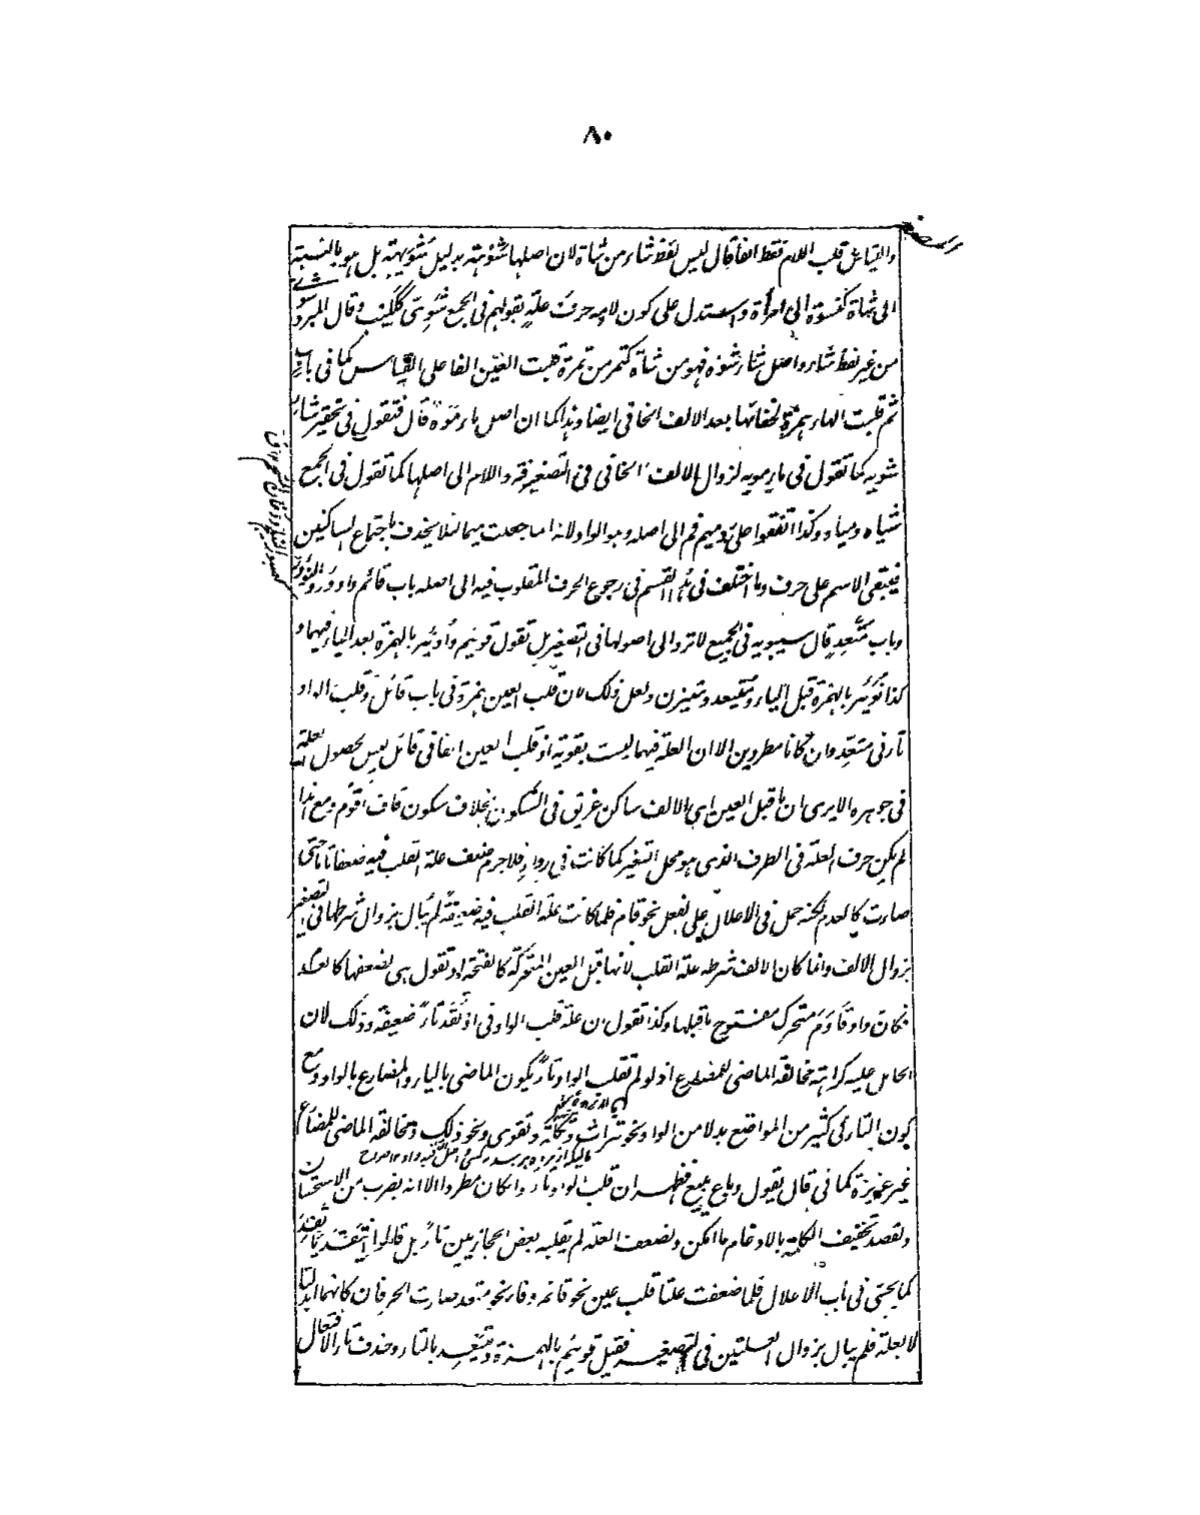 ٨٠
والقياس قلب اللام فقط الفا قال ليس لفظ شاء من شاة لان اصلها شوهة بدليل شويهة بل هو بالنسبة
الى شاة كنسوة الى امرأة واستدل على كون لامه حرف علة بقولهم فى الجمع شوى ككليب وقال المبرد
من غير لفظ شاء واصل شاء شوه فهو من شاة كتمر من تمرة قلبت العين الفا على القياس كما فى باب
ثم قلبت الهاء همزة لخفائها بعد الالف الخافى ايضا وهذا كما ان اصل ماء موه قال فتقول فى تحقير شاء
شويه كما تقول فى ماء مويه لزوال الالف الخافى فى التصغير فترد اللام الى اصلها كما تقول فى الجمع
شياه ومياه وكذا اتفقوا على رد ميم فم الى اصله وهو الواو لانه انما جعلت ميما لئلا يحذف باجتماع الساكنين
فيبقى الاسم على حرف وما اختلف فى هذا القسم فى رجوع الحرف المقلوب فيه الى اصله باب قائم وادؤر والنؤور
وباب متعد قال سيبويه فى الجميع لا ترد الى اصولها فى التصغير بل تقول قويئم وأديئر بالهمزة بعد الياء فيهما و
كذا نويئر بالهمزة قبل الياء ومتيعد ومتيزن ولعل ذلك لان قلب العين همزة فى باب قائل وقلب الواو
تاء فى متعد وان كانا مطردين الا ان العلة فيهما ليست بقوية اذ قلب العين الفا فى قائل ليس لحصول العلة
فى جوهره الا يرى ان ما قبل العين اى الالف ساكن عريق فى السكون بخلاف سكون قاف اقوم ومع هذا
لم يكن حرف العلة فى الطرف الذى هو محل التغير كما كانت فى رداء فلا جرم ضعف علة القلب فيه ضعفا تاما حتى
صارت كالعدم لكنه حمل فى الاعلال على الفعل نحو قام فلما كانت علة القلب فيه ضعيفة لم يبال بزوال شرطها فى التصغير
بزوال الالف وانما كان الالف شرط علة القلب لانها قبل العين المتحركة كالفتحة او تقول هى لضعفها كالعدم
فكان واو قاوم متحرك مفتوح ما قبلها وكذا نقول ان علة قلب الواو فى اوتقد تاء ضعيفة وذلك لان
الحامل عليه كراهة مخالفة الماضى للمضارع اذ لو لم تقلب الواو تاء يكون الماضى بالياء والمضارع بالواو ومع
كون التاء فى كثير من المواضع بدلا من الواو نحو تراث وتكأة وتقوى ونحو ذلك ومخالفة الماضى للمضارع
غير عزيزة كما فى قال يقول وباع يبيع فظهر ان قلب الواو تاء وان كان مطردا الا انه بضرب من الاستحسان
ولقصد تخفيف الكلمة بالادغام ما امكن ولضعف العلة لم يقلبه بعض الحجازيين تاء بل قالوا ايتقد ياتقد
كما يجئ فى باب الاعلال فلما ضعفت علتا قلب عين نحو قائم وفاء نحو متعد صارت الحرفان كانهما ابدلتا
لا بعلة فلم يبال بزوال العلتين فى التصغير فقيل قويئم بالهمزة ومتيعد بالتاء وحذف تاء الافتعال